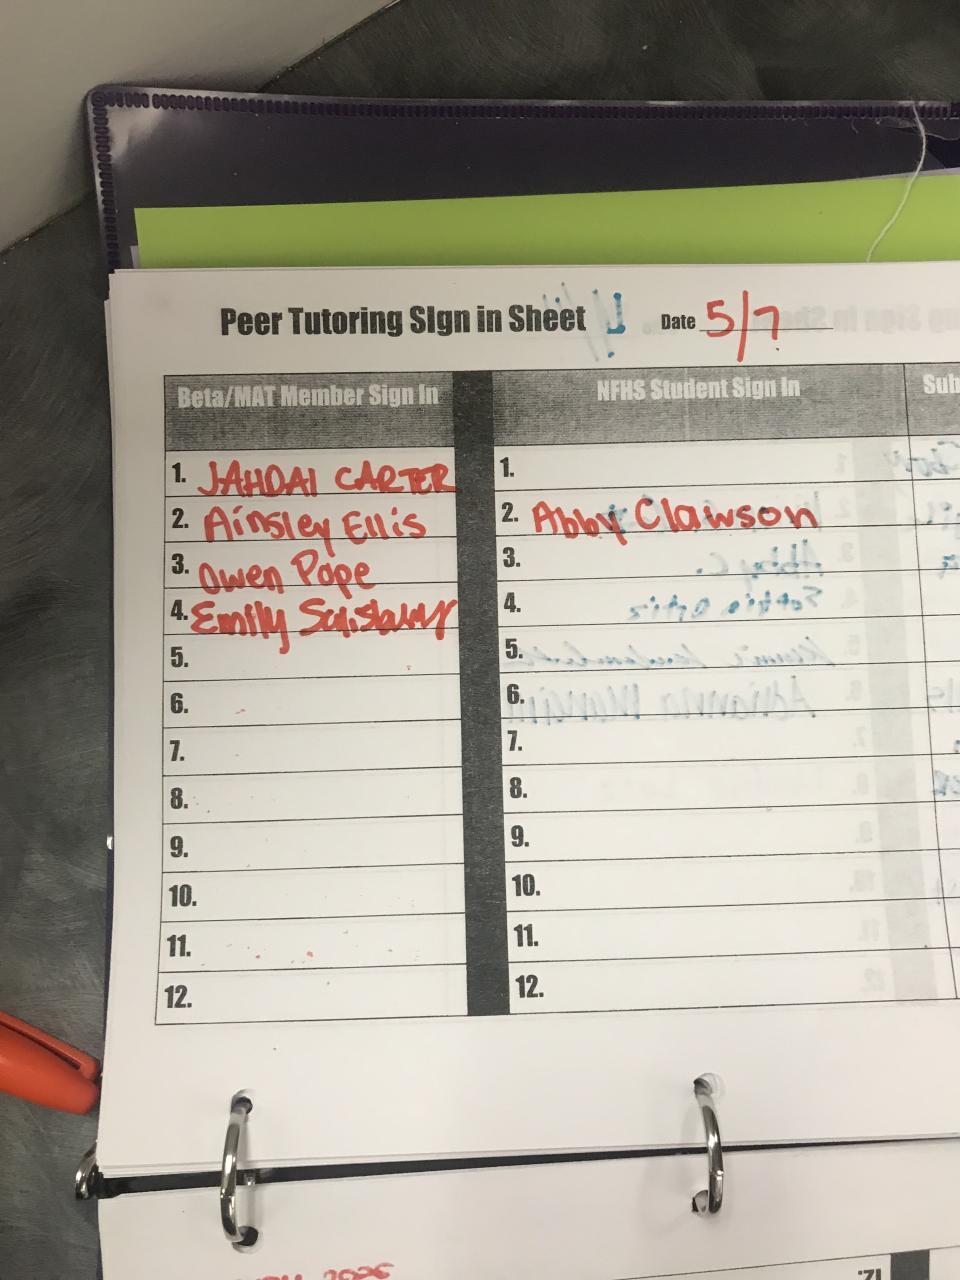 Peer Tutoring SIgn in Sheet Date 5/7
Beta/MAT Member Sign In NFHS Student Sign In Sub
1. JAHDAI CARTER 1.
2. Ainsley Ellis 2. Abby Clawson
3. Owen Pope 3.
4. Emily Salisbury 4.
5. 5.
6. 6.
7. 7.
8. 8.
9. 9.
10. 10.
11. 11.
12. 12.
12.